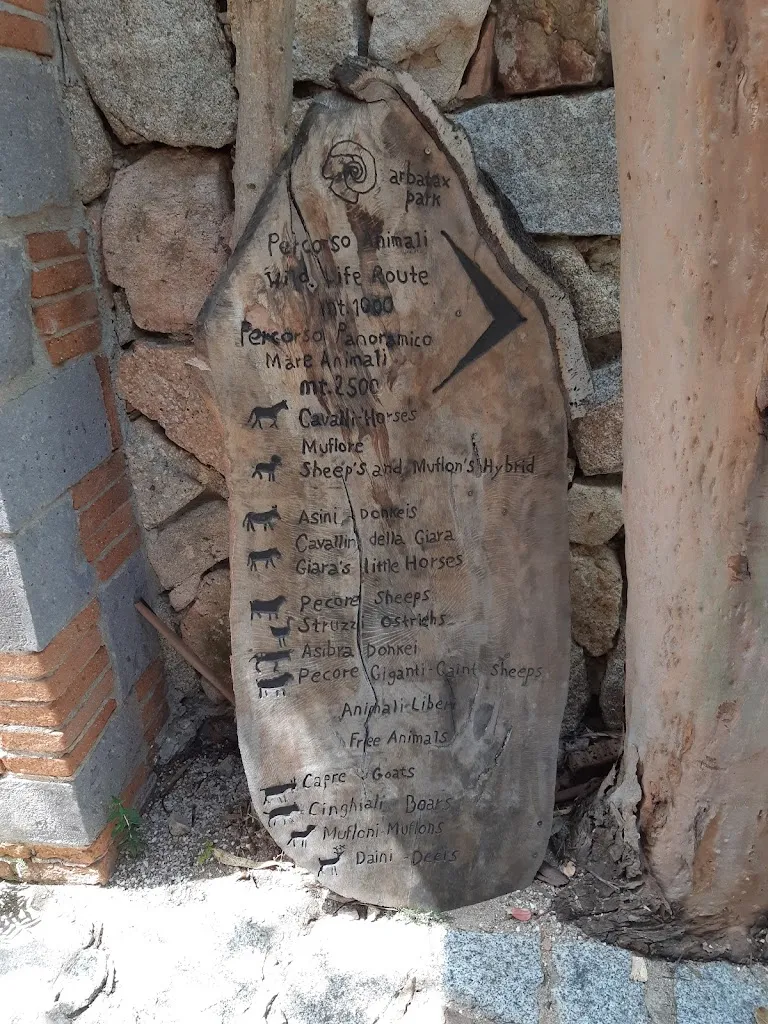 arbatax
park
Percorso Animali
Wild Life Route
mt.1000
Percorso Panoramico
Mare Animali
mt.2500
Cavalli-Horses
Muflore
Sheep's and Muflon's Hybrid
Asini Donkeis
Cavallini della Giara
Giara's little Horses
Pecore Sheeps
Struzzi Ostrichs
Asibra Donkei
Pecore Giganti-Gaint Sheeps
Animali Liberi
Free Animals
Capre Goats
Cinghiali Boars
Mufloni-Muflons
Daini-Deeis